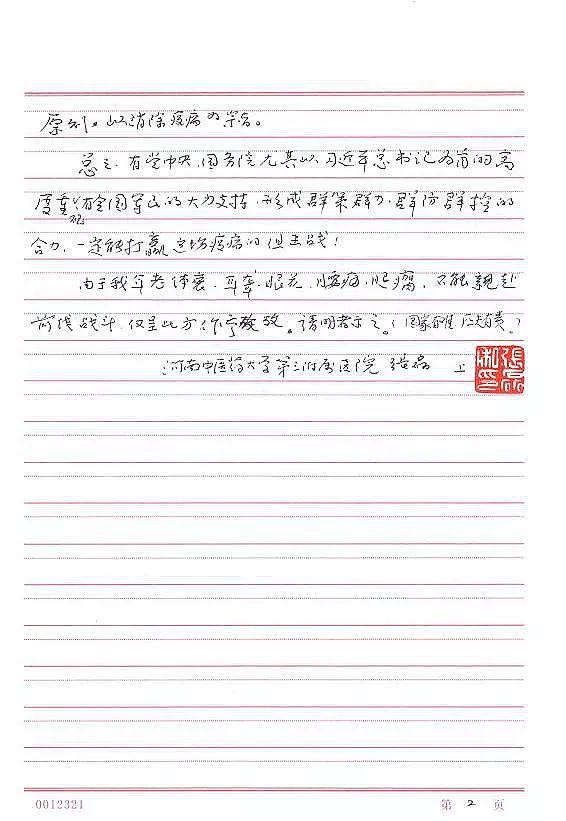 原则。以消除疫病为宗旨。
总之,有党中央、国务院尤其以习近平总书记为首的高
度重视、全国军民的大力支持,形成群策群力、群防群控的
合力,一定能打赢这场疫病的阻击战!
由于我年老体衰、耳聋、眼花、腰痛、腿痛,不能親赴
前线战斗,仅呈此方作。请明者示之。(国家有难,匹夫有责。)
河南中医药大学第三附属医院 张磊 上
張磊私印
0012321 第 2 页